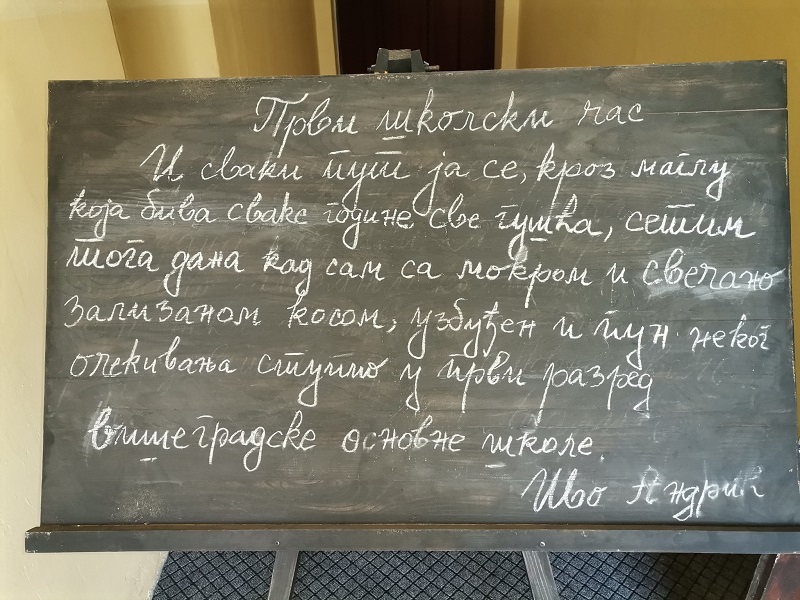 Први школски час
И сваки пут ја се, кроз маглу
која бива сваке године све гушћа, сетим
тога дана кад сам са мокром и свечано
зализаном косом, узбуђен и пун неког
очекивања ступио у први разред
вишеградске основне школе.
Иво Андрић